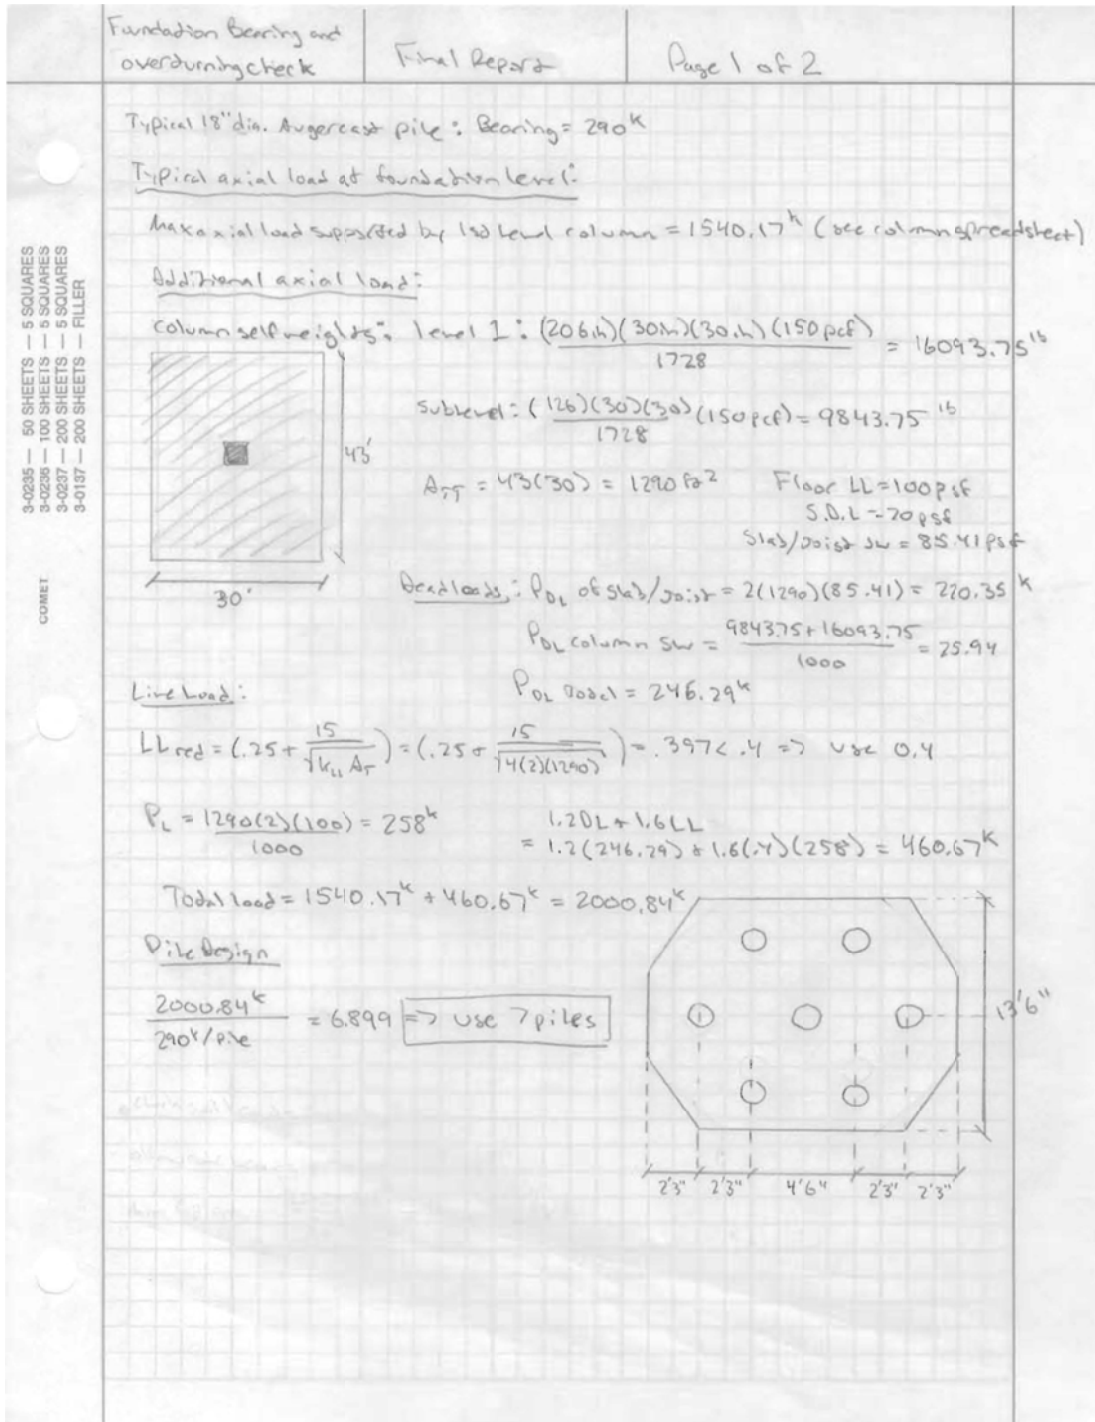 Foundation Bearing and
overturning check
Final Report
Page 1 of 2
3-0235 — 50 SHEETS — 5 SQUARES
3-0236 — 100 SHEETS — 5 SQUARES
3-0237 — 200 SHEETS — 5 SQUARES
3-0137 — 200 SHEETS — FILLER
COMET
Typical 18" dia. Augercast pile: Bearing = 290^k
Typical axial load at foundation level:
Max axial load supported by 1st level column = 1540.17^k (see column spreadsheet)
Additional axial load:
Column self weights: level 1: (206in)(30in)(30in)(150pcf)/1728 = 16093.75^lb
Sublevel: (126)(30)(30)/1728 (150pcf) = 9843.75^lb
43'
30'
A_TT = 43(30) = 1290 ft² Floor LL = 100psf
S.D.L = 20psf
Slab/Joist sw = 85.41psf
Dead loads: P_DL of slab/joist = 2(1290)(85.41) = 220.35^k
P_DL column sw = (9843.75+16093.75)/1000 = 25.94
P_DL Total = 246.29^k
Live Load:
LL red = (.25 + 15/√(k_LL A_T)) = (.25 + 15/√(4(2)(1290))) = .397 < .4 => use 0.4
P_L = 1290(2)(100)/1000 = 258^k
1.2DL + 1.6LL
= 1.2(246.29) + 1.6(.4)(258) = 460.67^k
Total load = 1540.17^k + 460.67^k = 2000.84^k
Pile Design
2000.84^k/290^k/pile = 6.899 => use 7 piles
13'6"
2'3" 2'3" 4'6" 2'3" 2'3"